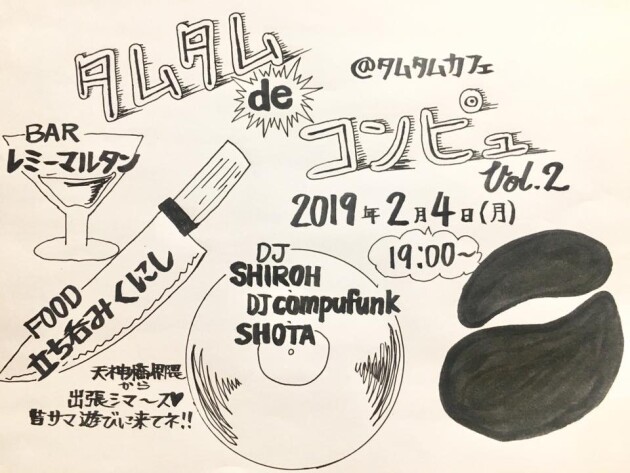 タムタム
de
コンピュー
Vol.2
@タムタムカフェ
2019年2月4日(月)
19:00~
BAR
レミーマルタン
FOOD
立ち呑みくにし
DJ
SHIROH
DJ compufunk
SHOTA
天神橋界隈
から
出張シマ～ス♥
皆サマ遊びに来てネ!!